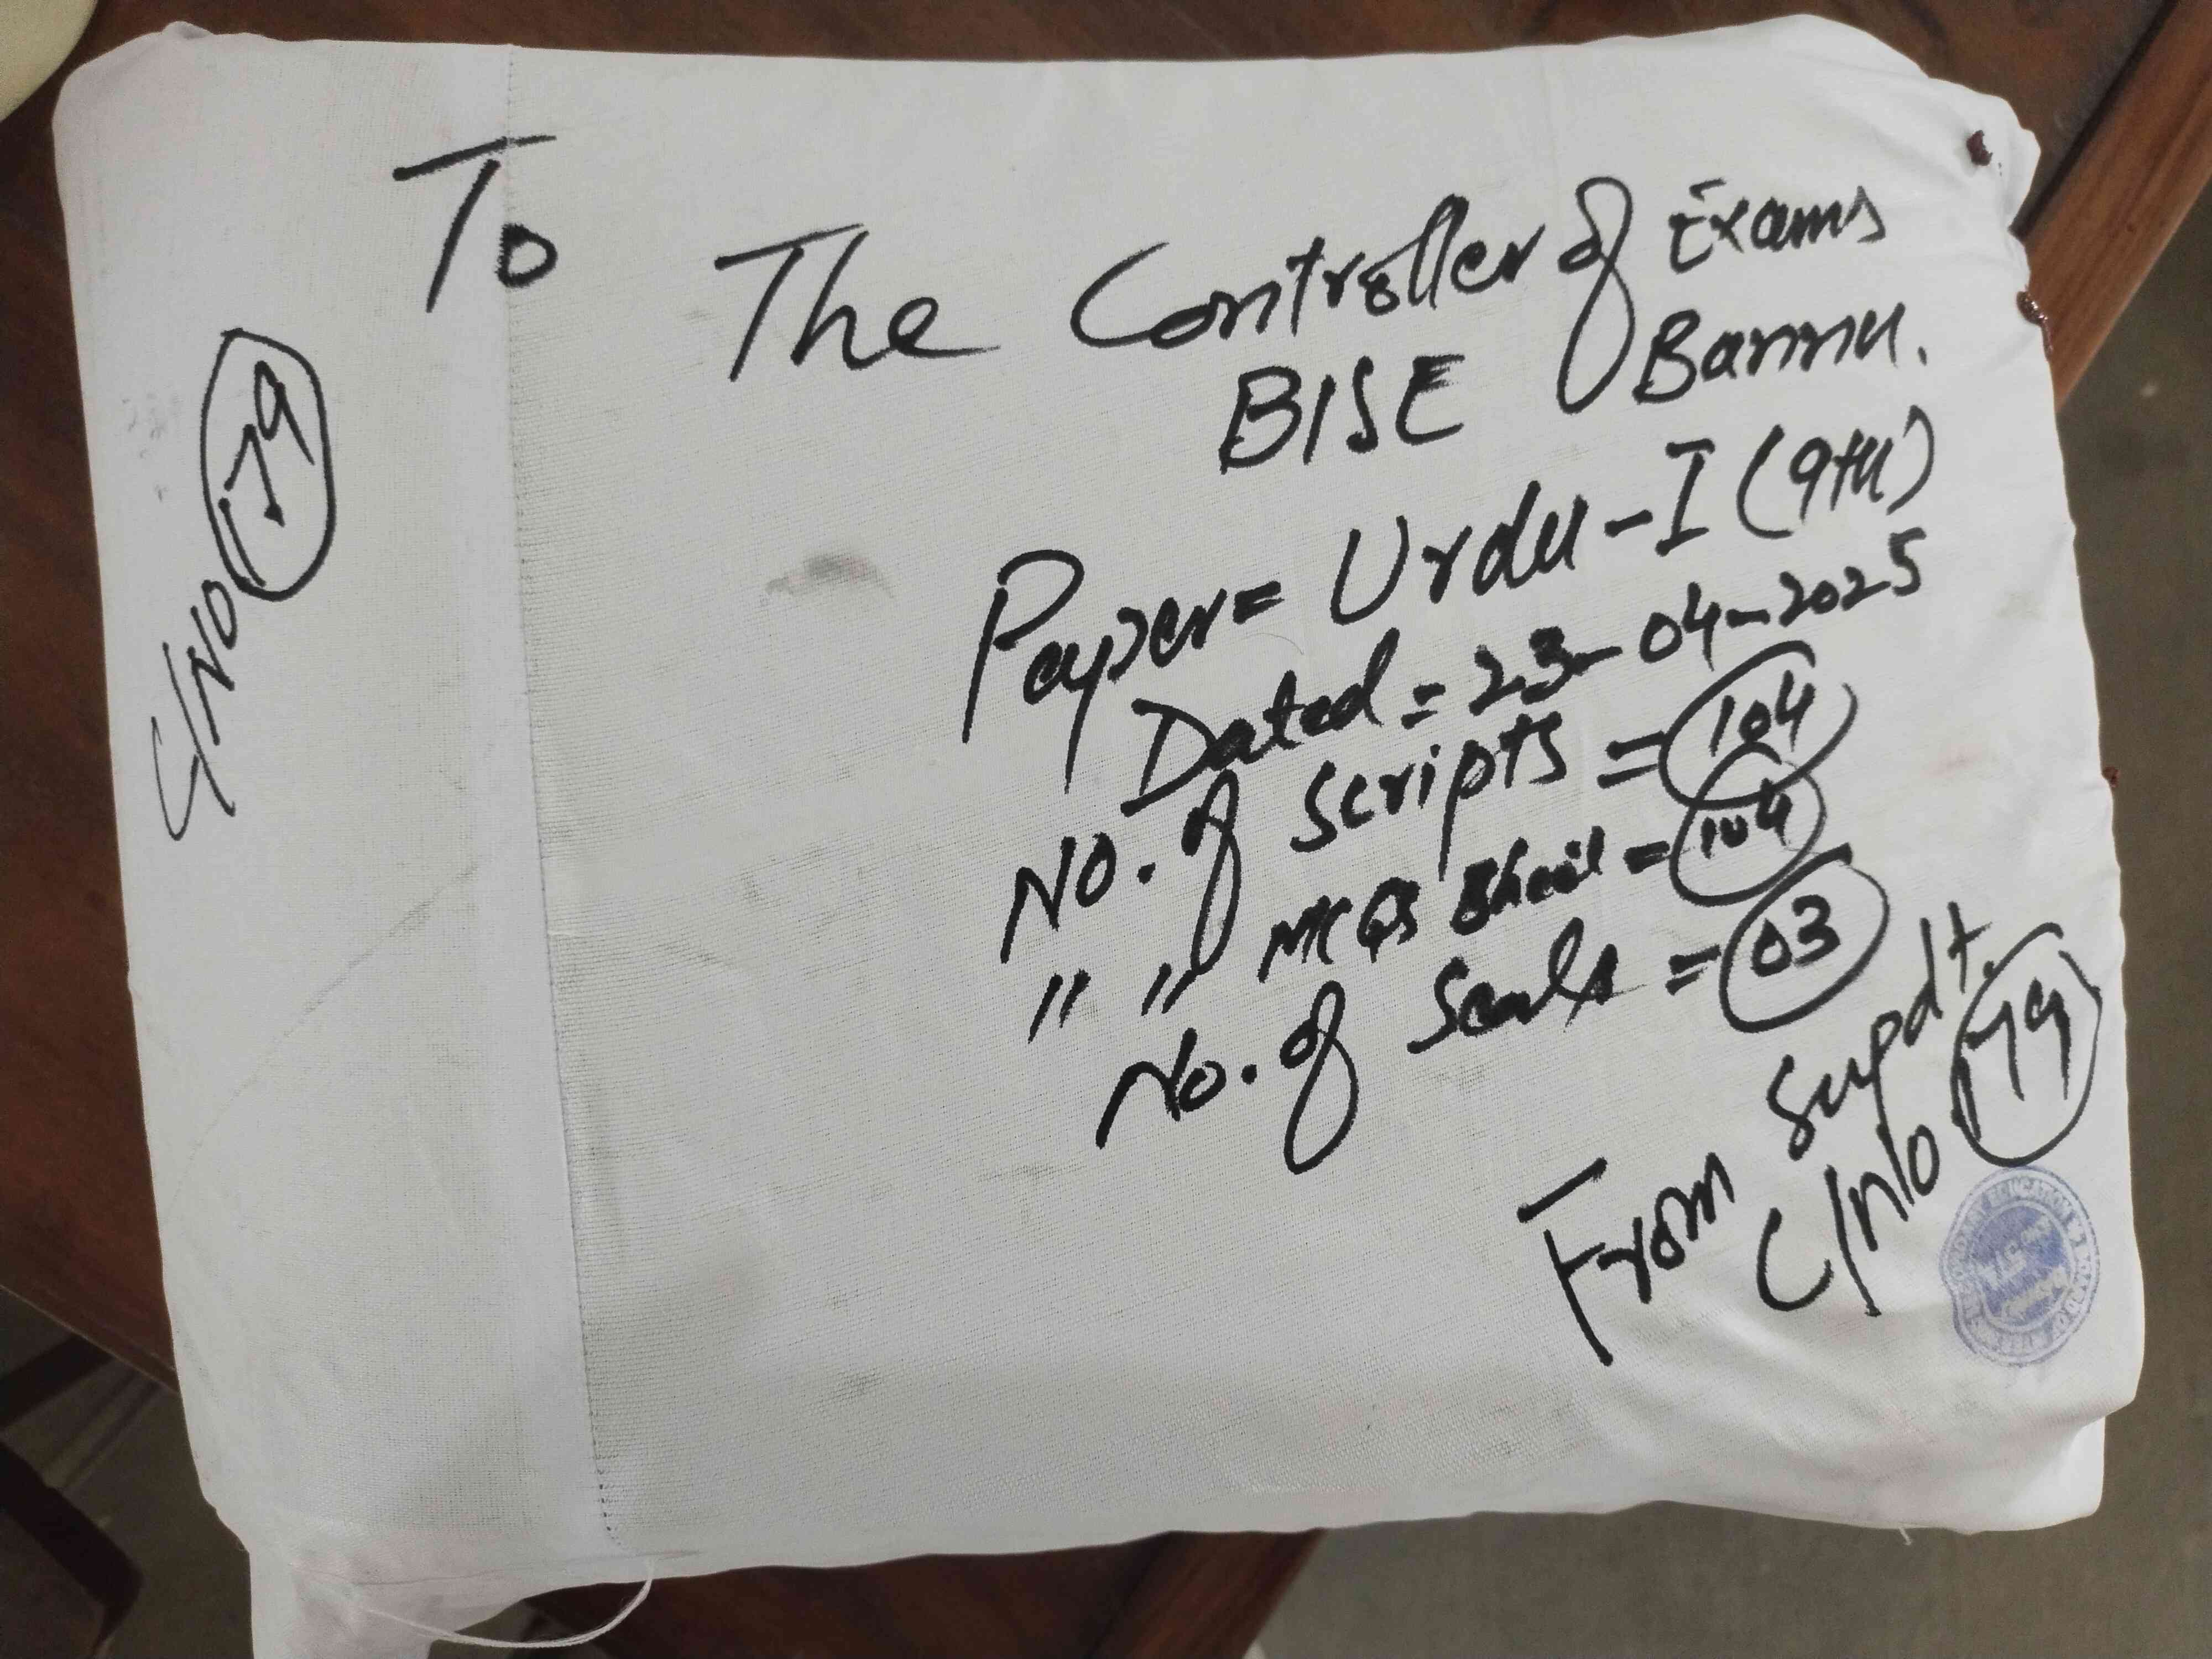 To
The Controller of Exams
BISE Bannu.
Paper = Urdu-I (9th)
Dated = 23-04-2025
No. of Scripts = 104
" " MCQs Sheet = 104
No. of Seals = 03
From Supdt.
C/no 179
C/NO 179